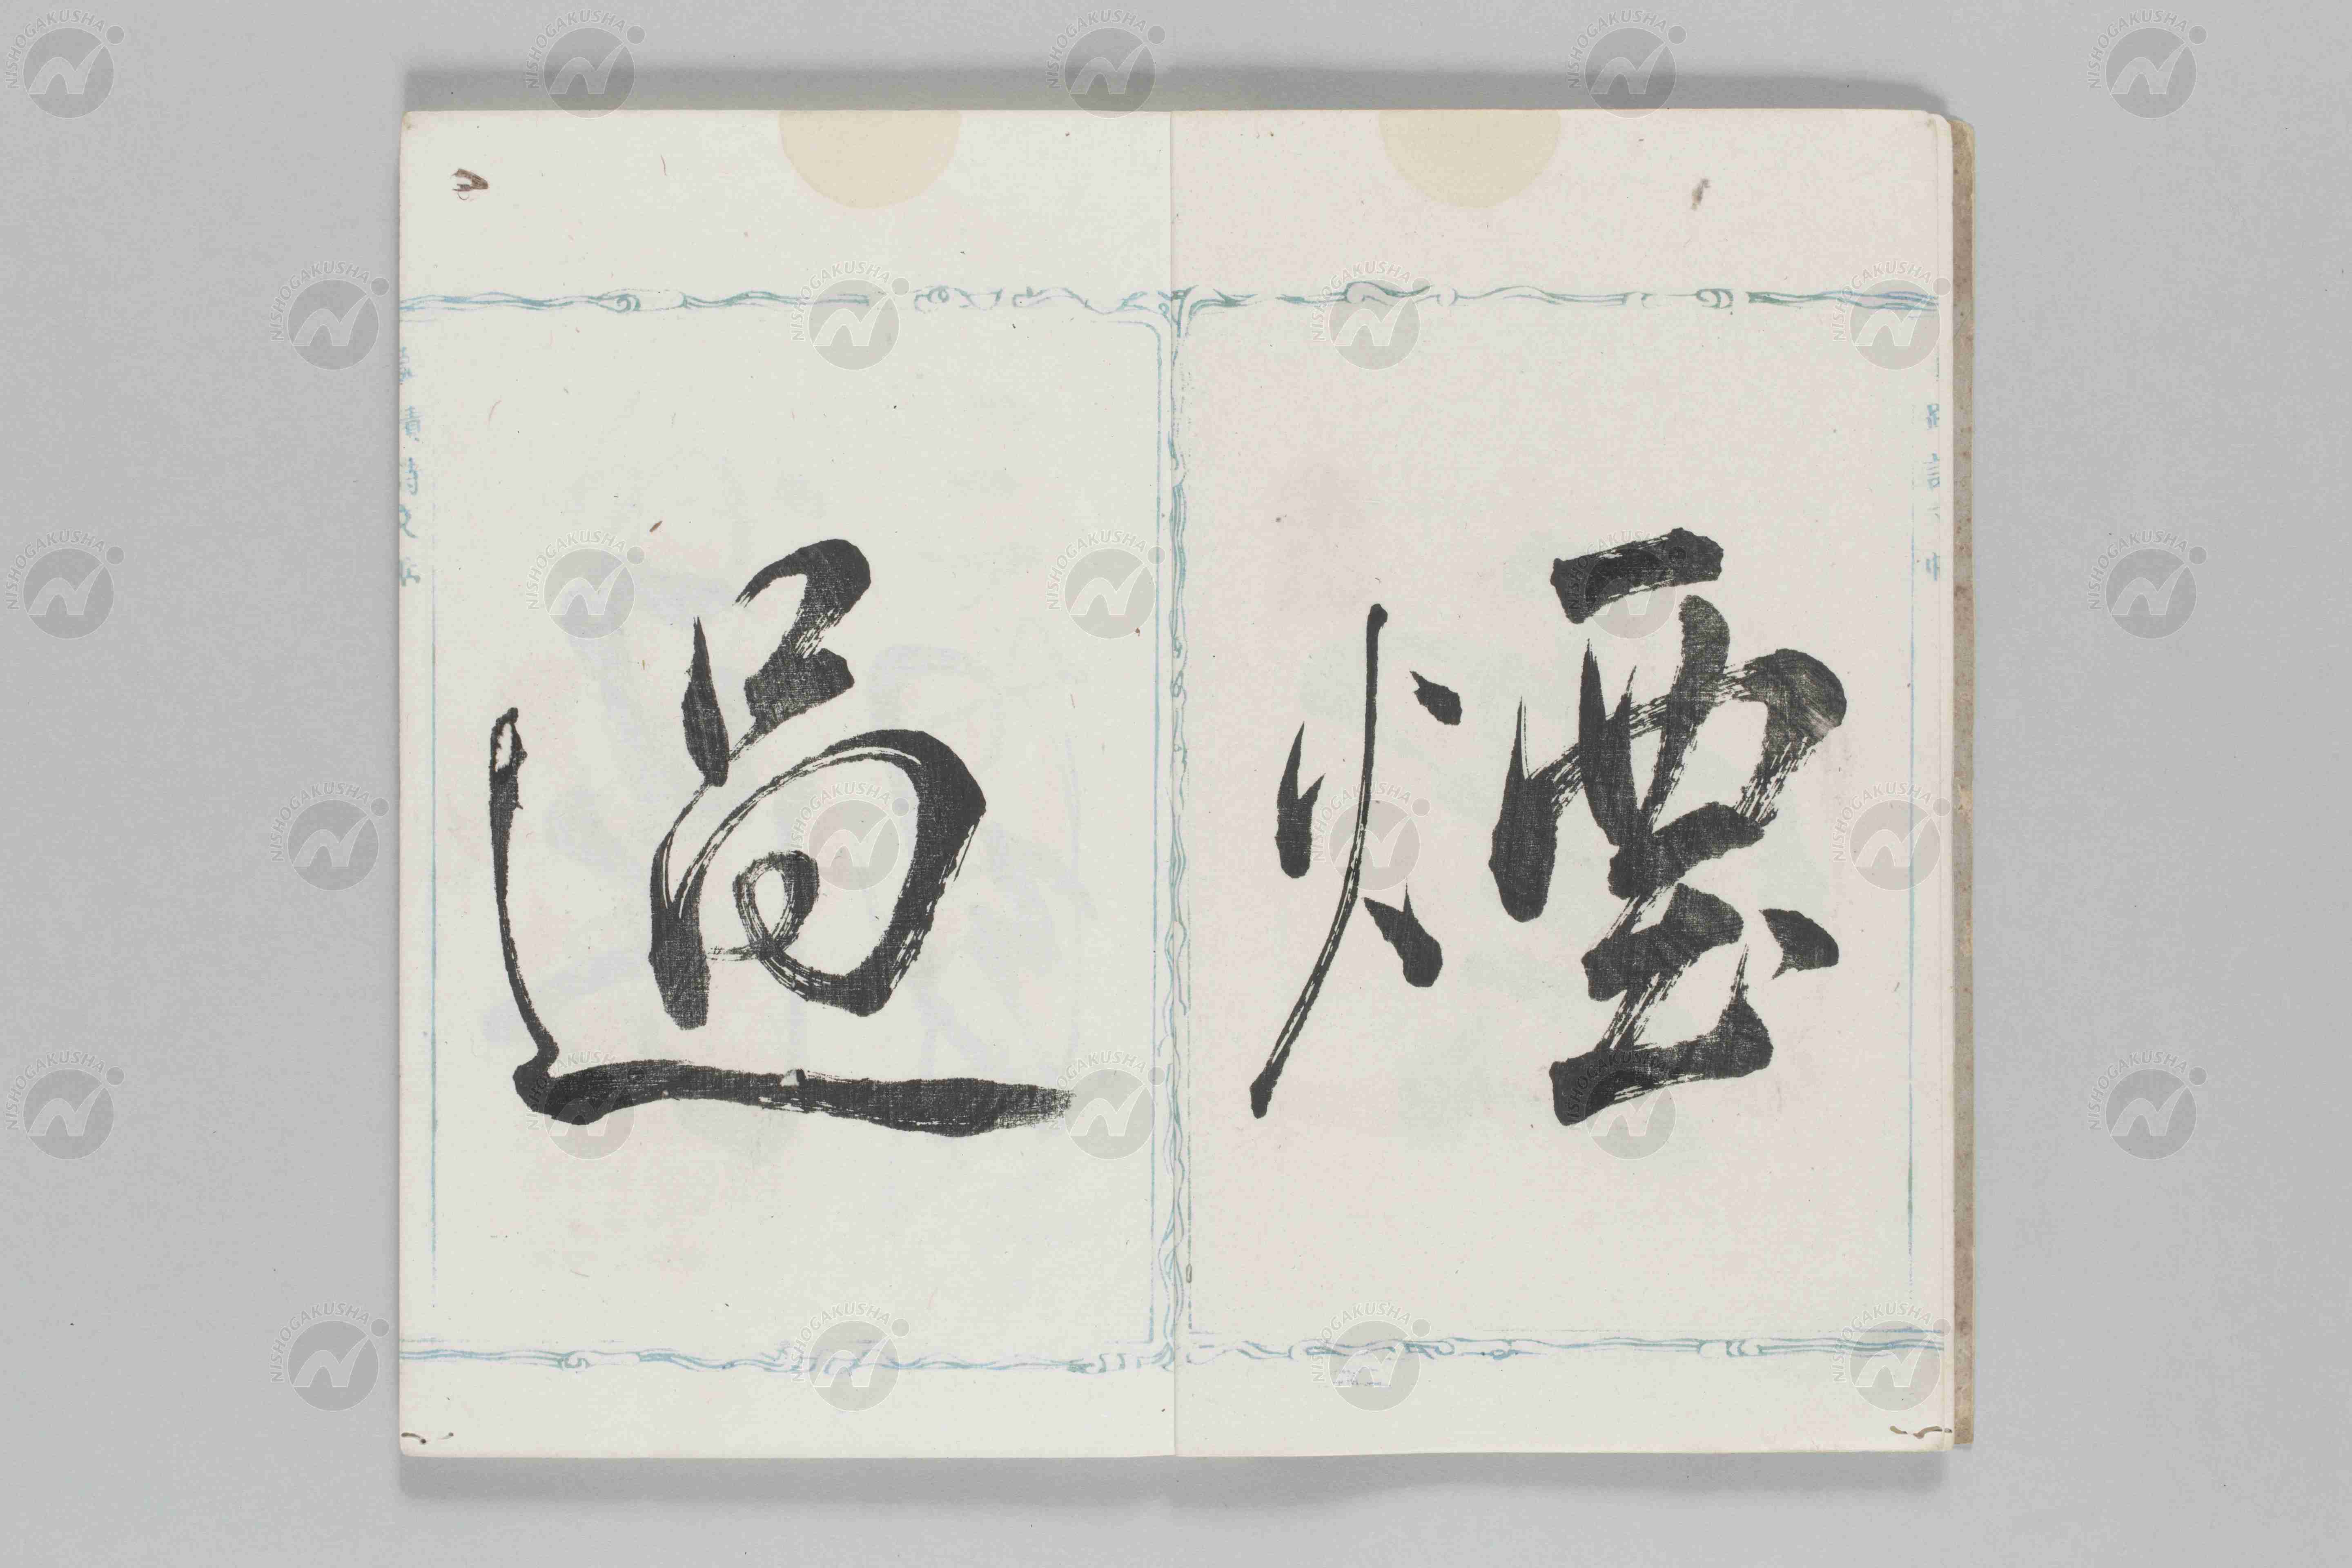 煙
過
NISHOGAKUSHA